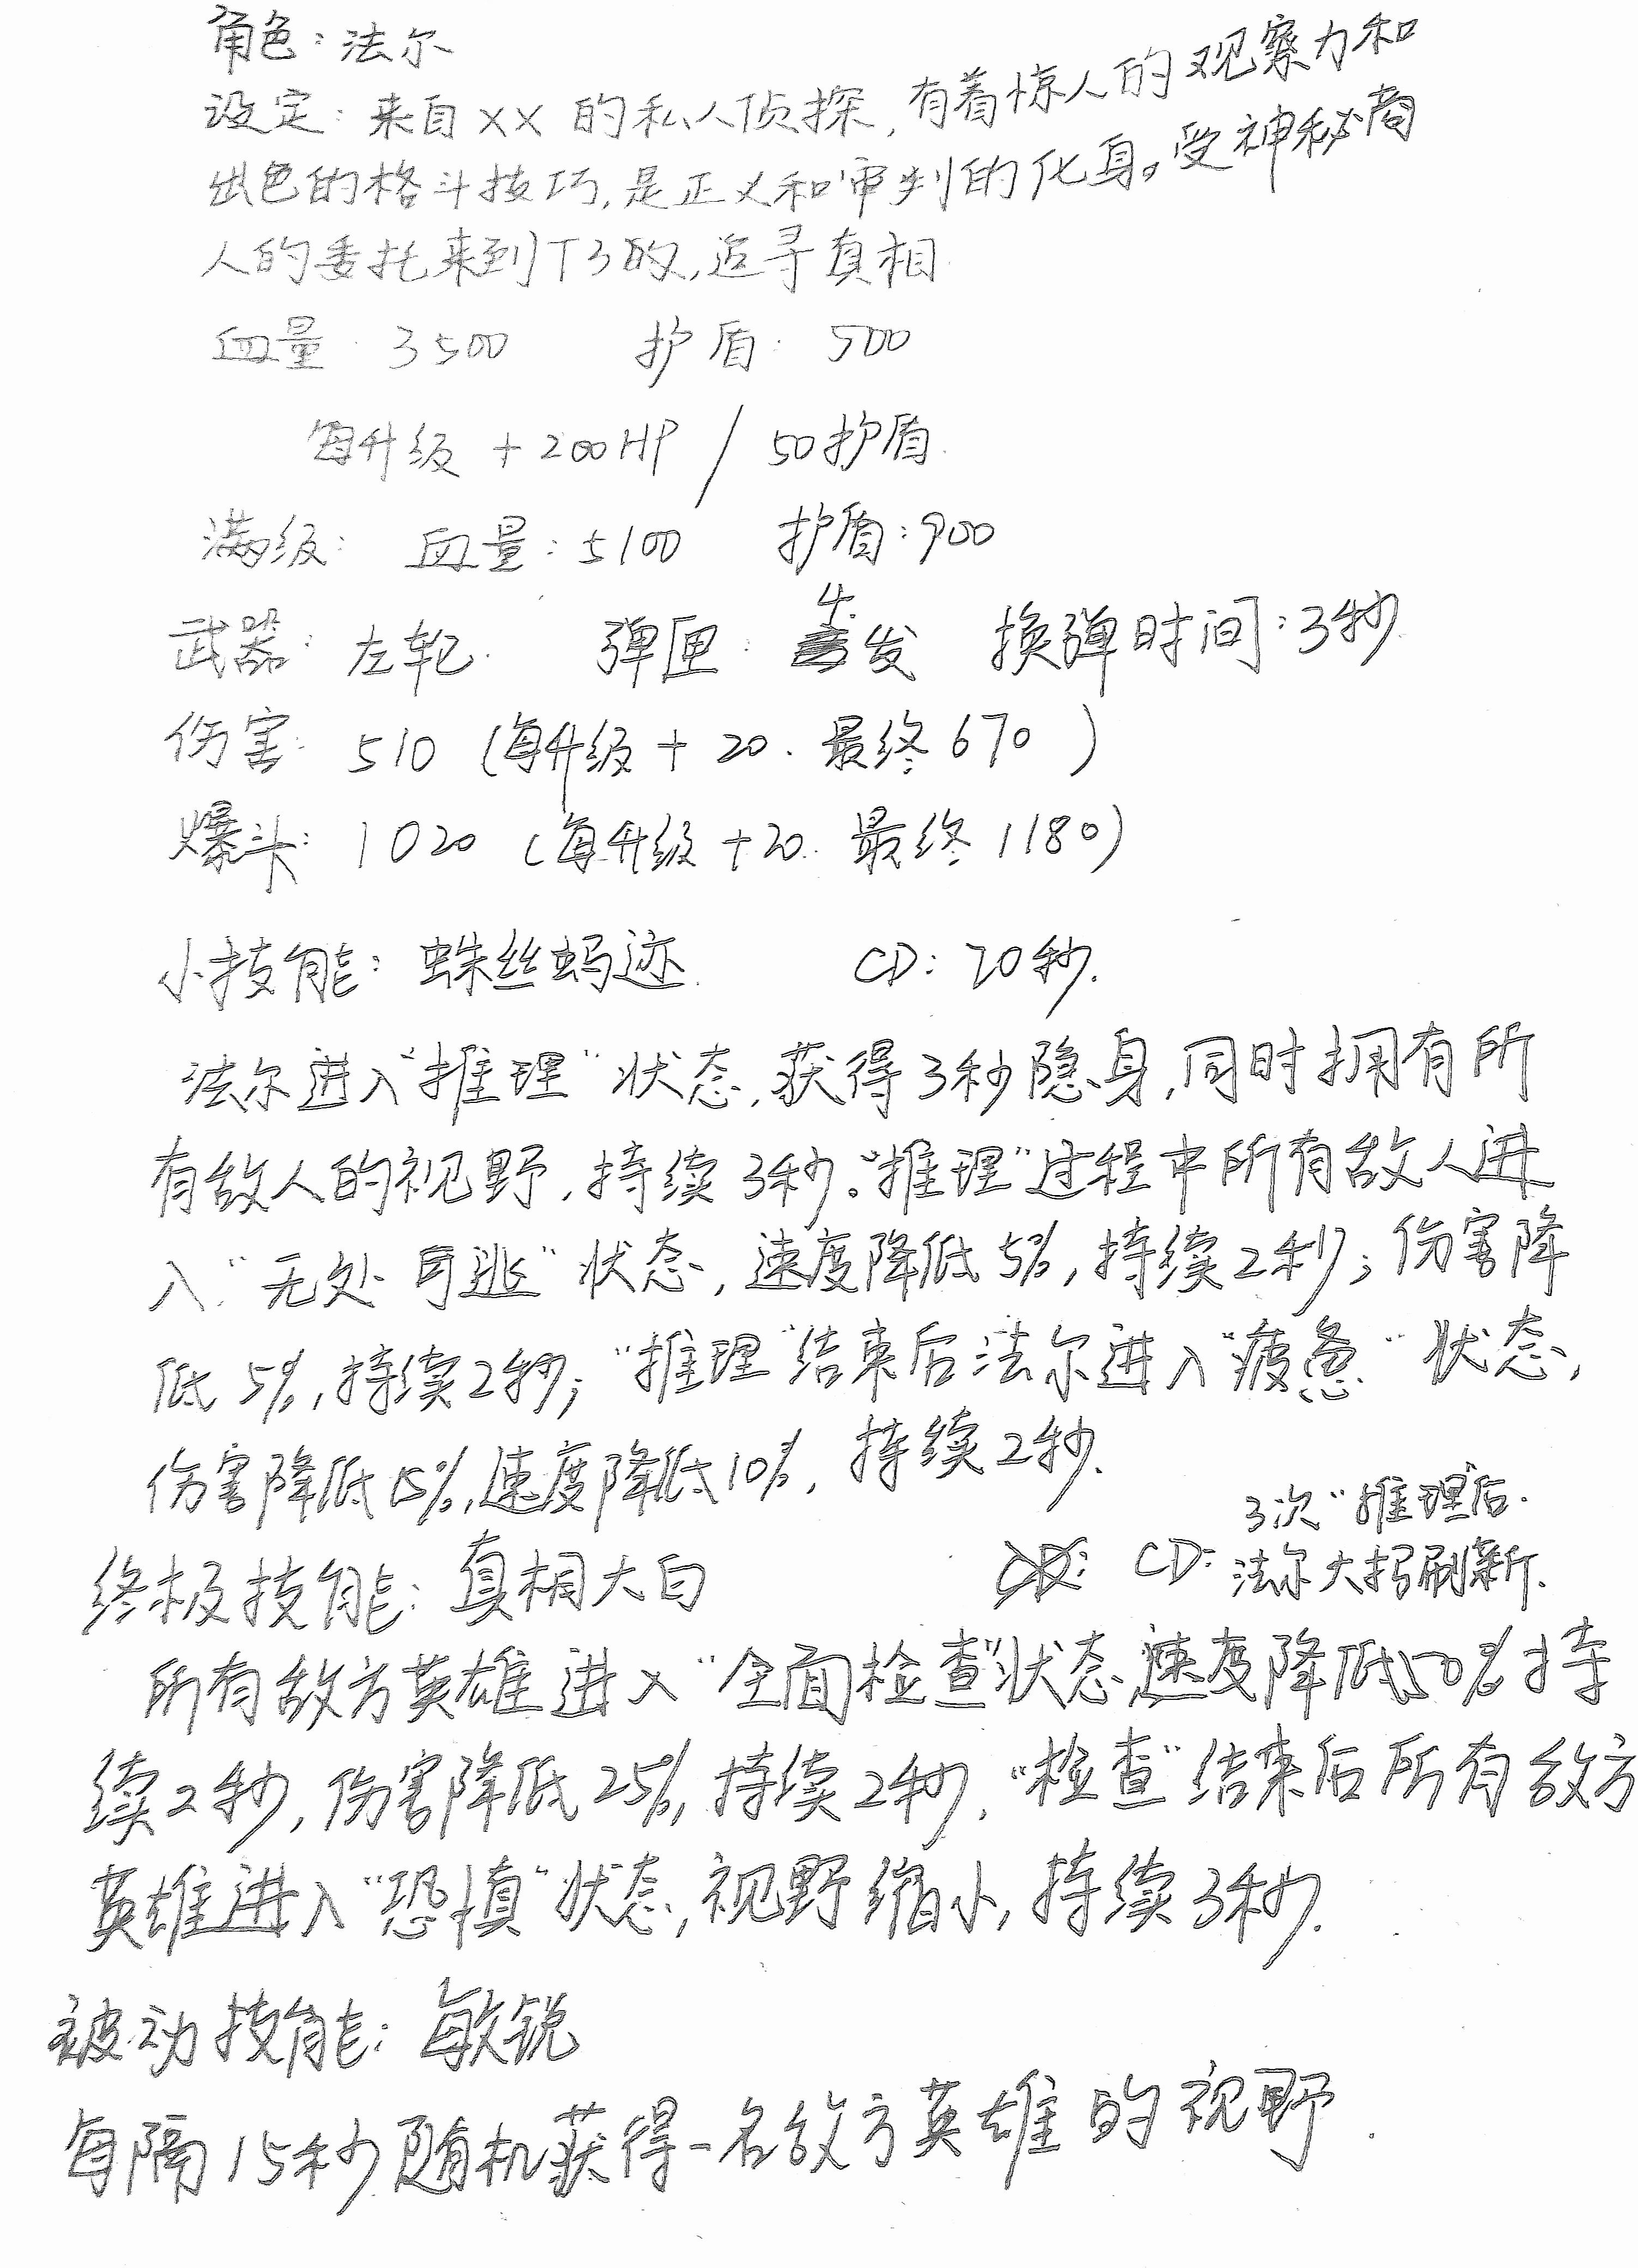 角色：法尔
设定：来自XX的私人侦探，有着惊人的观察力和
出色的格斗技巧，是正义和审判的化身。受神秘商
人的委托来到T3的，追寻真相
血量：3500 护盾：500
每升级 +200HP / 50护盾
满级：血量：5100 护盾：900
武器：左轮 弹匣：4发 换弹时间：3秒
伤害：510 (每升级 + 20. 最终670)
爆头：1020 (每升级 +20. 最终1180)
小技能：蛛丝蚂迹 CD：20秒.
法尔进入“推理”状态，获得3秒隐身，同时拥有所
有敌人的视野，持续3秒。“推理”过程中所有敌人进
入“无处可逃”状态，速度降低5%，持续2秒；伤害降
低5%，持续2秒；“推理”结束后法尔进入“疲惫”状态，
伤害降低15%，速度降低10%，持续2秒.
3次“推理”后.
终极技能：真相大白 CD：法尔大招刷新.
所有敌方英雄进入“全面检查”状态，速度降低50%持
续2秒，伤害降低25%，持续2秒，“检查”结束后所有敌方
英雄进入“恐慎”状态，视野缩小，持续3秒.
被动技能：敏锐
每隔15秒随机获得一名敌方英雄的视野.